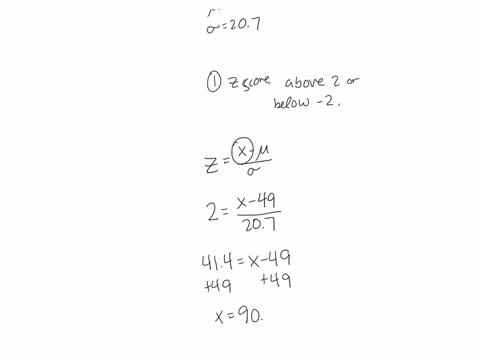 σ=20.7
① z score above 2 or
below -2.
z = x-μ / σ
2 = x-49 / 20.7
41.4 = x-49
+49 +49
x = 90.